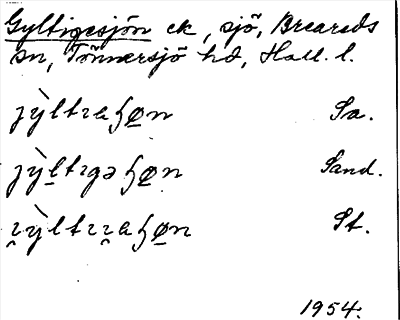 Gyltigesjön ek, sjö, Breareds
sn, Tönnersjö hd, Hall. l.
jỳltıaɧøn Sa.
jỳltıgəɧøn Sand.
ỳltıaɧøn St.
1954.